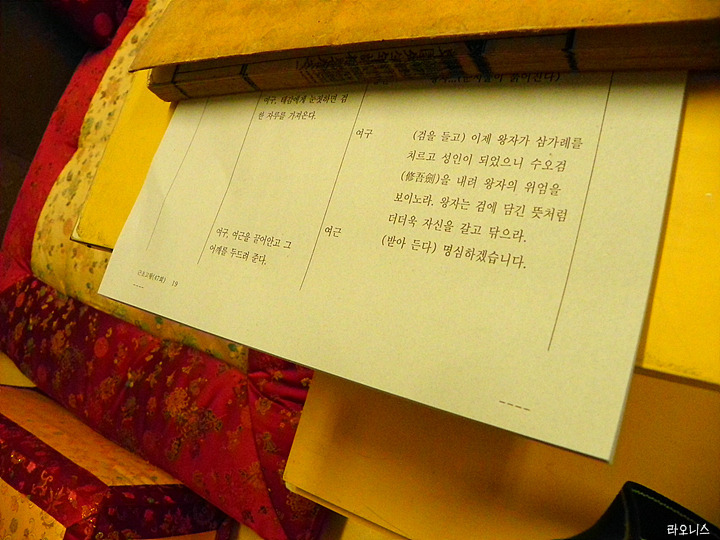 여구, 대장에게 눈짓하면 검
한 자루를 가져온다.
여구
(검을 들고) 이제 왕자가 삼가례를
치르고 성인이 되었으니 수오검
(修吾劍)을 내려 왕자의 위엄을
보이노라. 왕자는 검에 담긴 뜻처럼
더더욱 자신을 갈고 닦으라.
여구, 여근을 끌어안고 그
어깨를 두드려 준다.
여근
(받아 든다) 명심하겠습니다.
근초고왕(47회) 19
라오니스